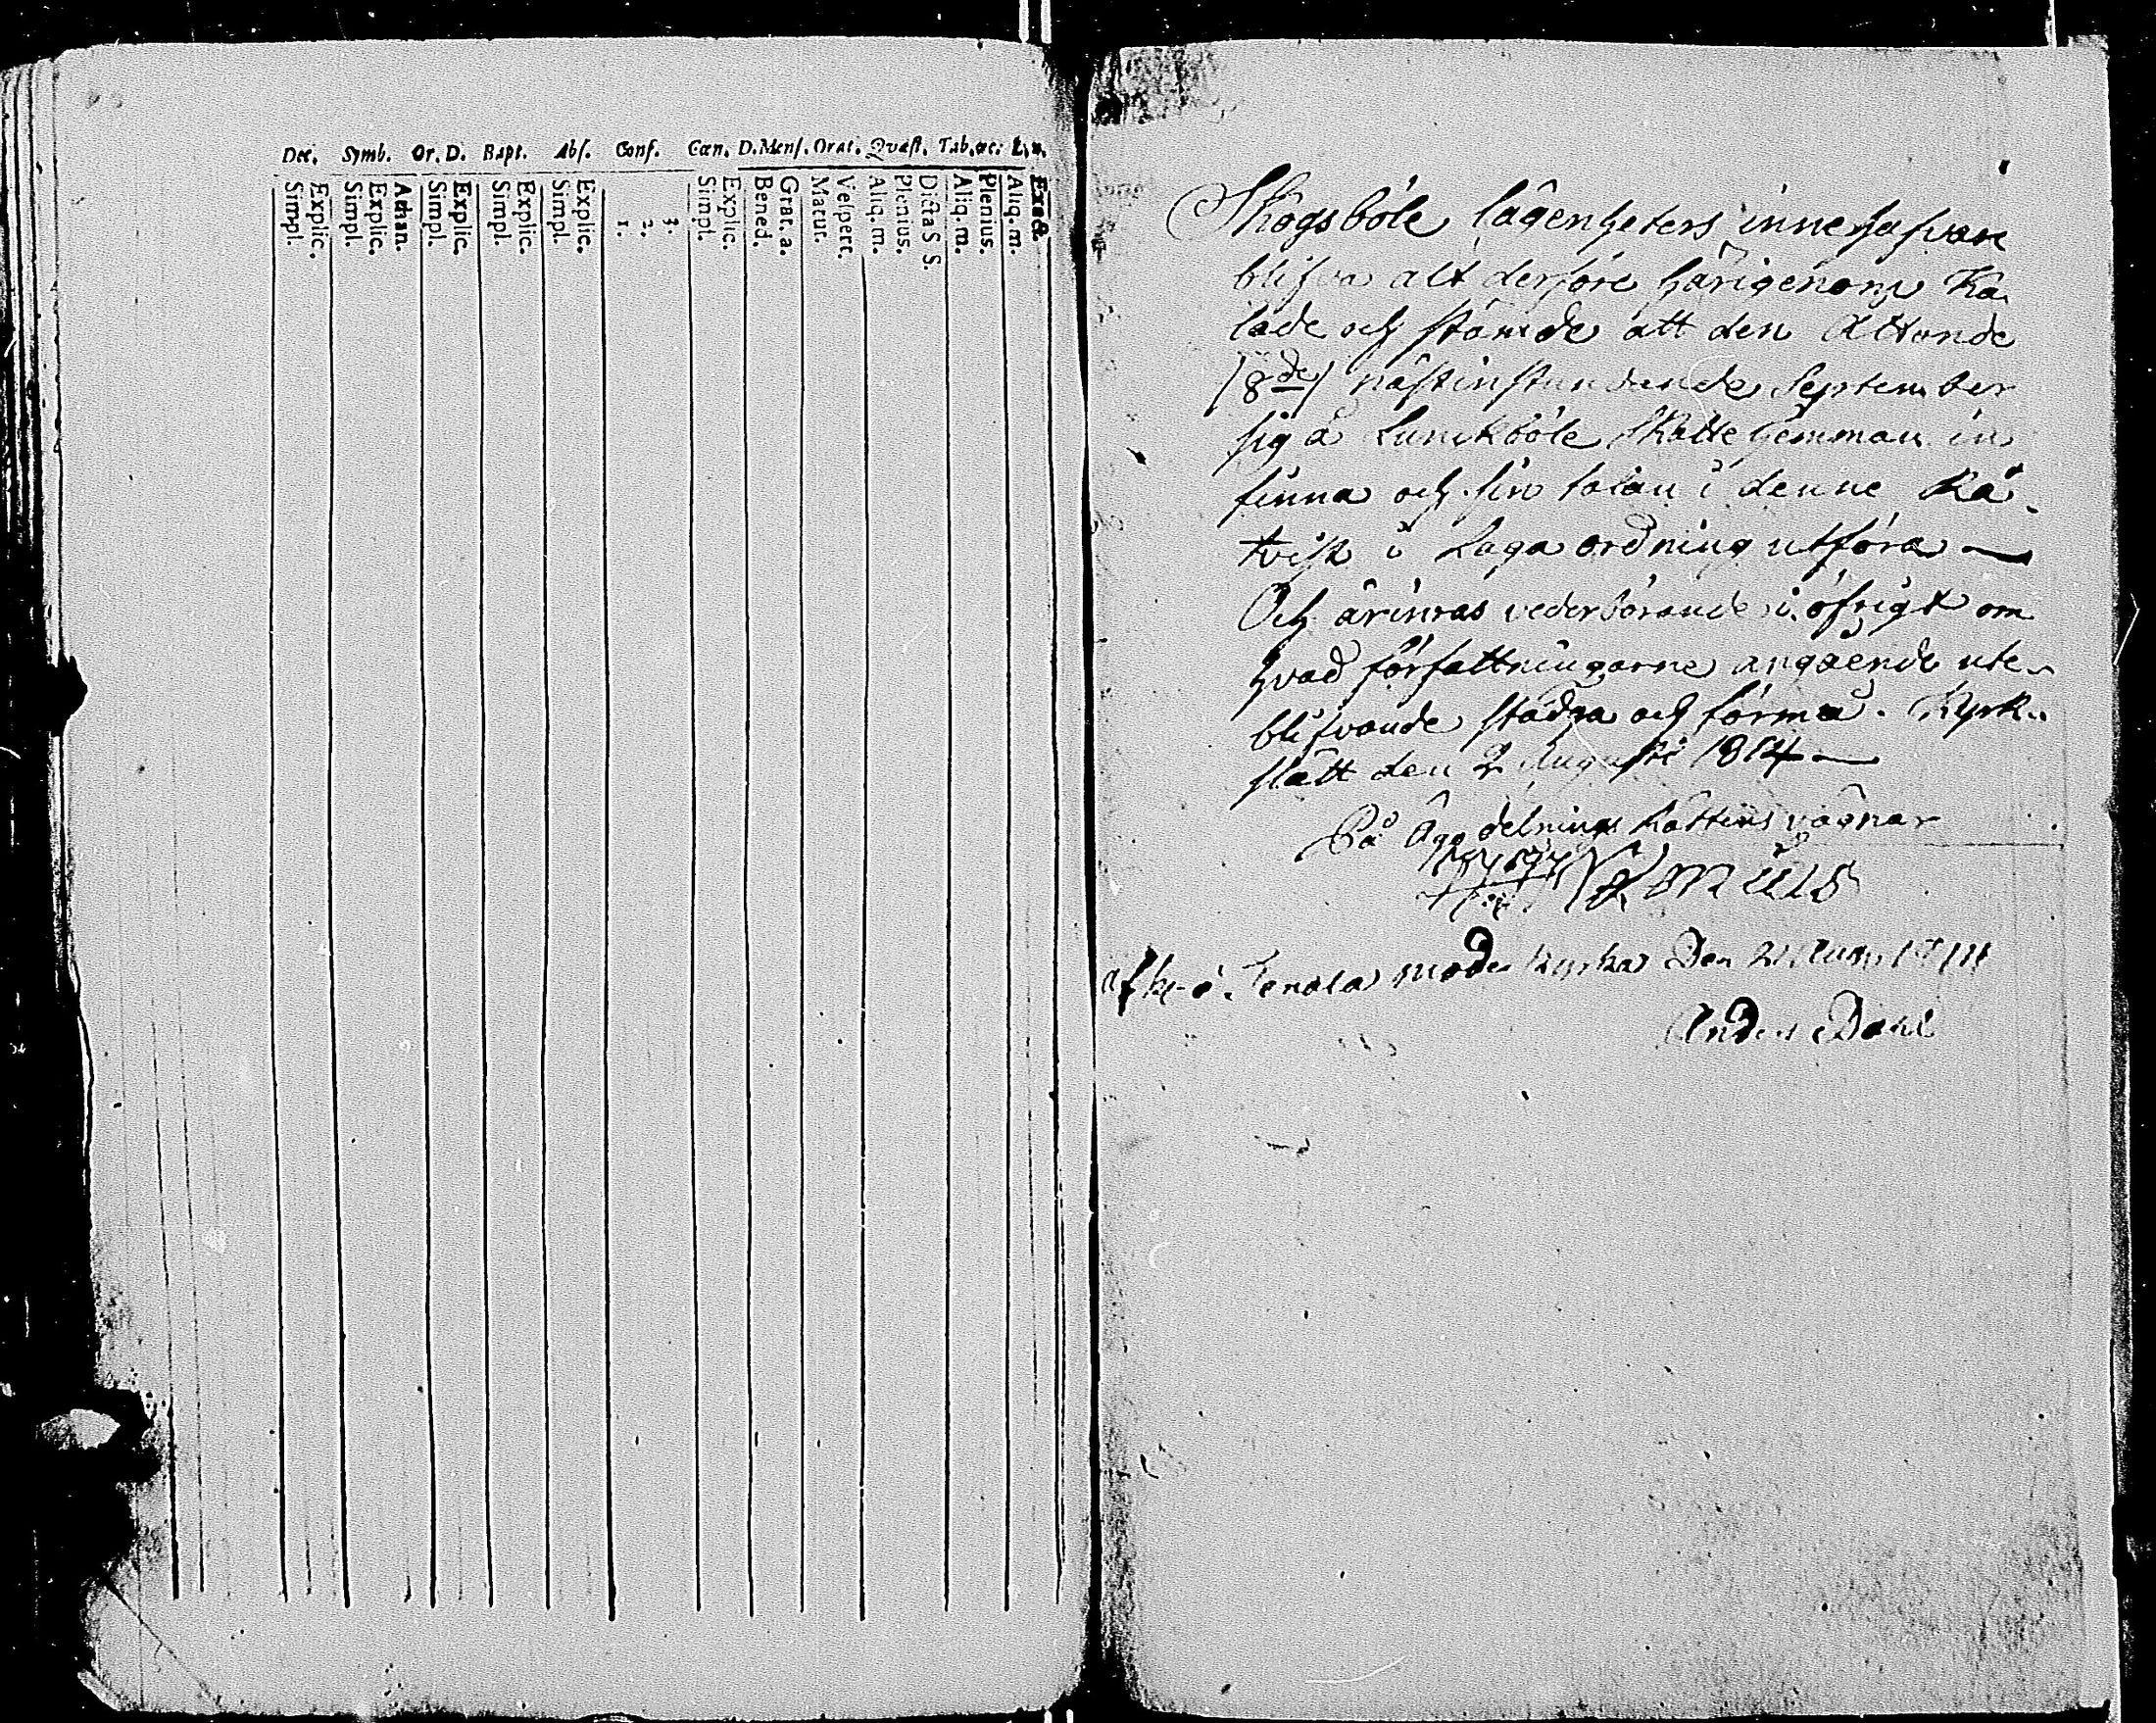 Dec. Symb. Or. D. Bapt. Abs. Conf. Cœn. D. Mens. Orat. Quæst. Tab. œc.
Explic.
Simpl.
Athan.
Explic.
Simpl.
Explic.
Simpl.
Explic.
Simpl.
Explic.
Simpl.
3.
2.
1.
Explic.
Simpl.
Grat. a.
Bened.
Vespert.
Matut.
Aliq. m.
Dicta S S.
Plenius.
Aliq. m.
Plenius.
Aliq. m.
Exact.
Skogsböle lägenheters innehafvare
blifva alt derföre härigenom Ka
lade och stämde att den Åttonde
(8de) nästinstundande September
sig å Lunckböle Skatte Hemman in
finna och sin talan i denne Rå
tvist i Laga ordning utföra —
Och ärinras vederbörande i öfrigt om
hvad författningarne angående ute-
blifvande stadga och förmå. Kyrk-
slätt den 2 Augusti 1814 —
På Ägodelnings Rättens vägnar
Tenala moder kyrka Den 21 Aug.
Anders Dahl